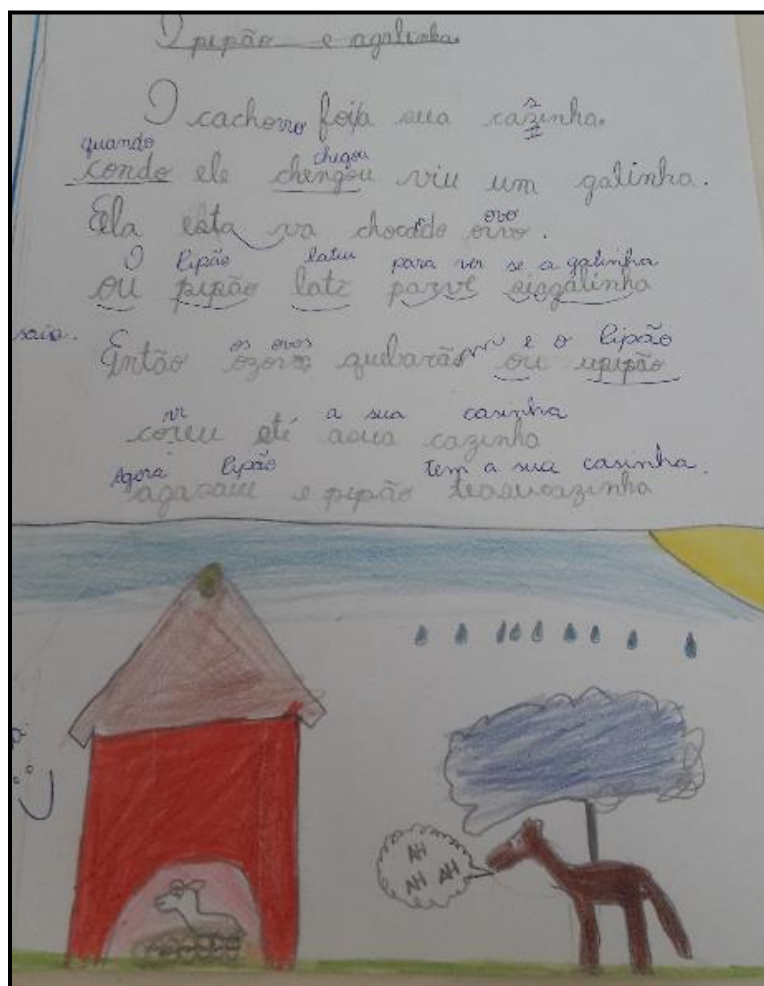 O pipão e agalinha
O cachorro foi a sua cazinha.
s
quando chegou
condo ele chengou viu um galinha.
ovo
Ela esta va chocãdo oivo.
O Pipão latiu para ver se a galinha
ou pipão latz parve sisgalinha
saia.
os ovos m e o Pipão
Então quebarão ou upipão
rr a sua casinha
coreu até asua cazinha
Agora Pipão tem a sua casinha.
e pipão
AH
AH AH